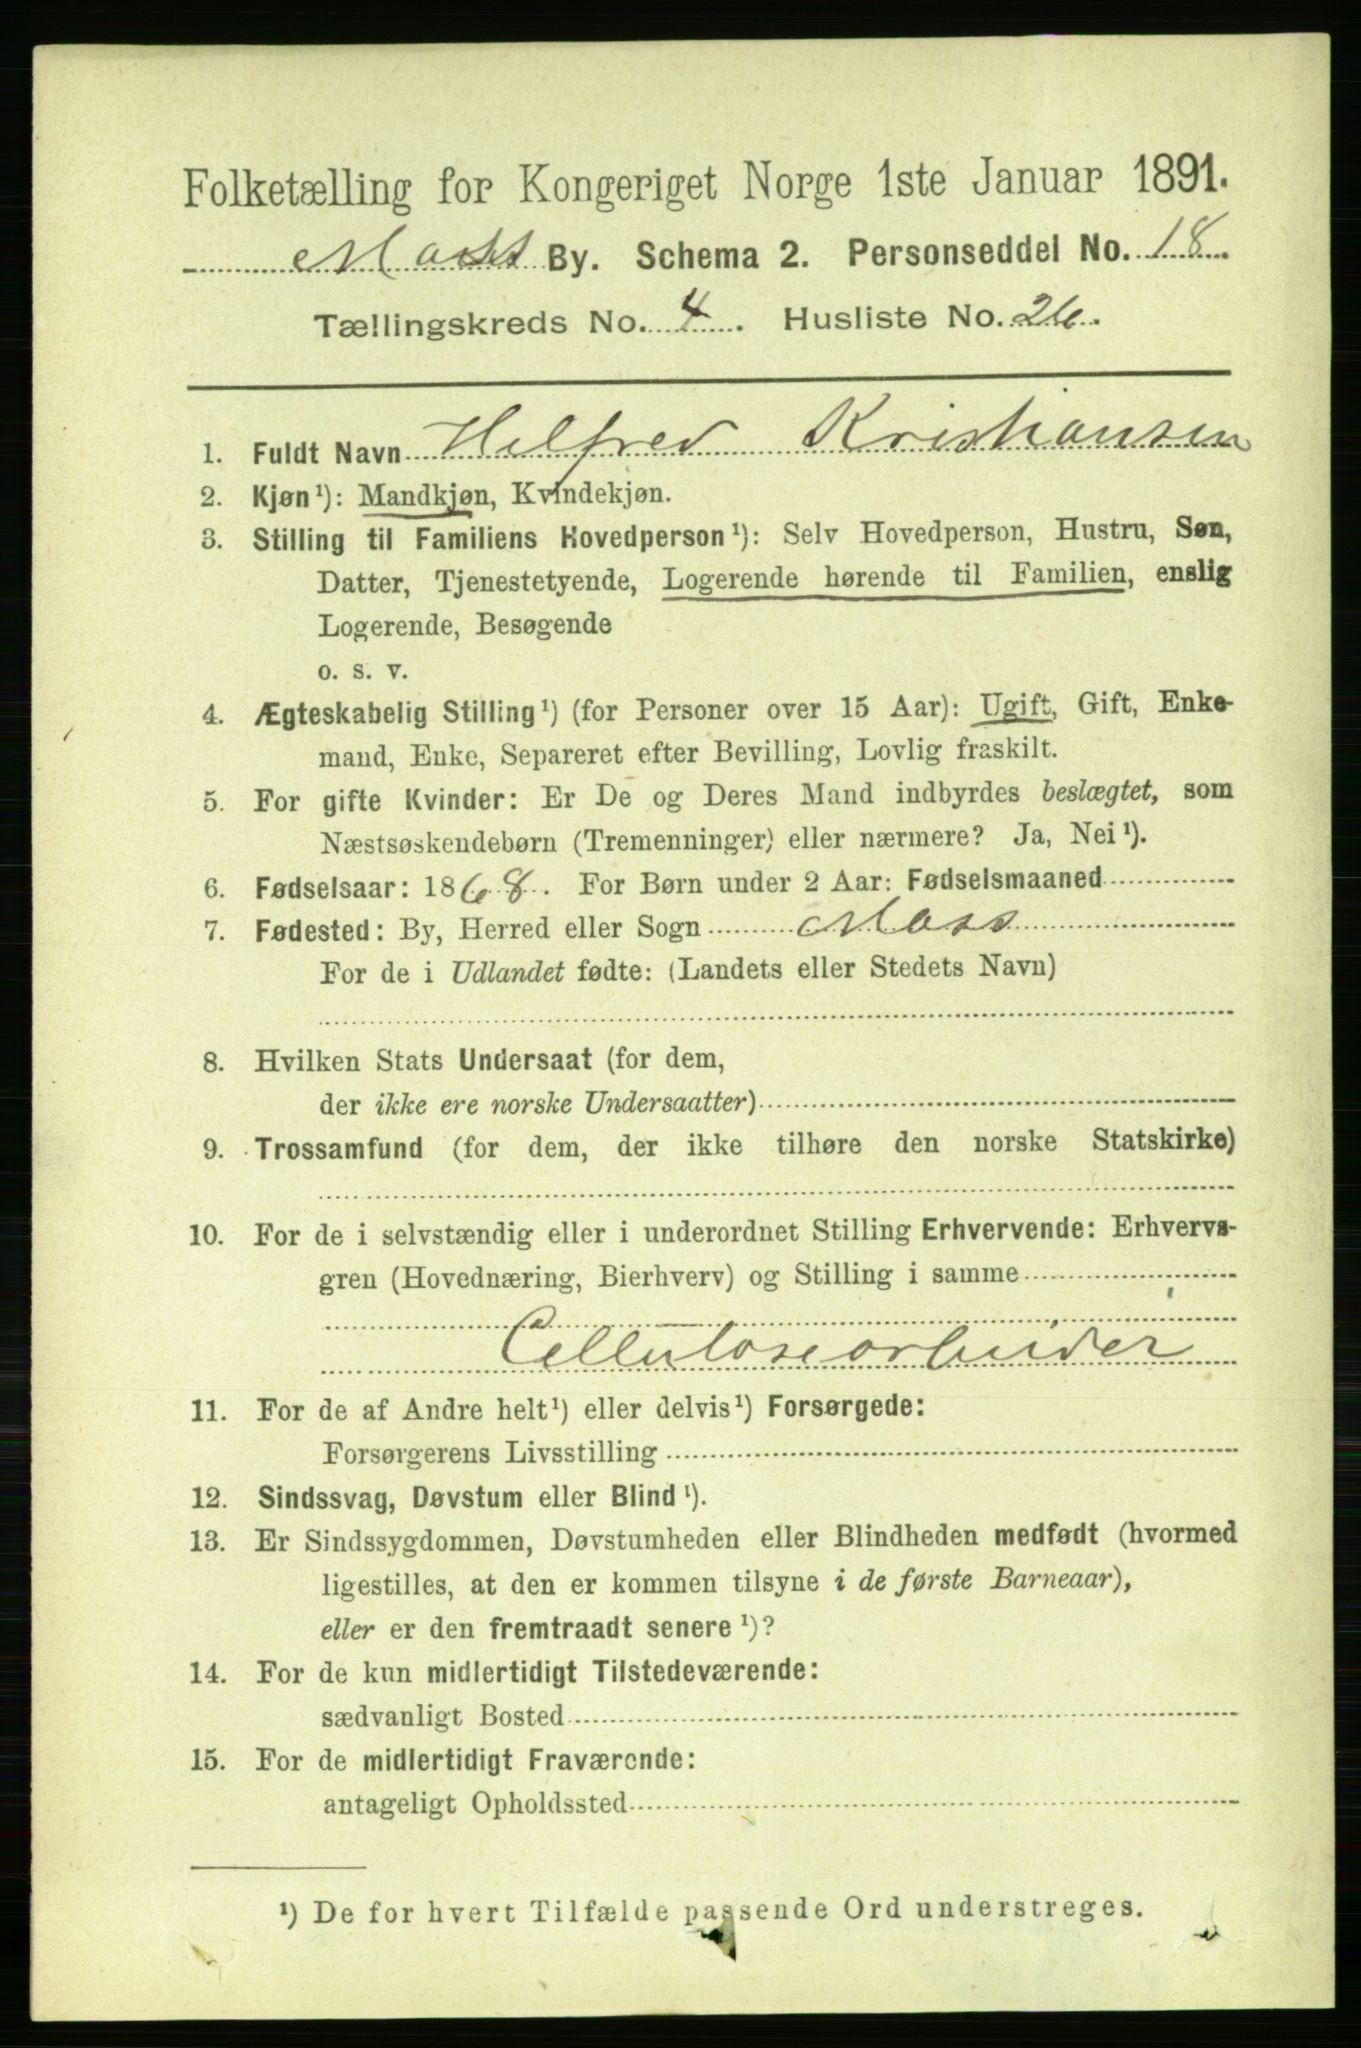 Folketælling for Kongeriget Norge 1ste Januar 1891.
Moss By. Schema 2. Personseddel No. 18.
Tællingskreds No. 4. Husliste No. 26.
1. Fuldt Navn Helfred Kristiansen
2. Kjøn¹): Mandkjøn, Kvindekjøn.
3. Stilling til Familiens Hovedperson¹): Selv Hovedperson, Hustru, Søn,
Datter, Tjenestetyende, Logerende hørende til Familien, enslig
Logerende, Besøgende
o. s. v.
4. Ægteskabelig Stilling¹) (for Personer over 15 Aar): Ugift, Gift, Enke-
mand, Enke, Separeret efter Bevilling, Lovlig fraskilt.
5. For gifte Kvinder: Er De og Deres Mand indbyrdes beslægtet, som
Næstsøskendebørn (Tremenninger) eller nærmere? Ja, Nei¹).
6. Fødselsaar: 1868. For Børn under 2 Aar: Fødselsmaaned
7. Fødested: By, Herred eller Sogn Moss
For de i Udlandet fødte: (Landets eller Stedets Navn)
8. Hvilken Stats Undersaat (for dem,
der ikke ere norske Undersaatter)
9. Trossamfund (for dem, der ikke tilhøre den norske Statskirke)
10. For de i selvstændig eller i underordnet Stilling Erhvervende: Erhvervs-
gren (Hovednæring, Bierhverv) og Stilling i samme
Cellulosearbeider
11. For de af Andre helt¹) eller delvis¹) Forsørgede:
Forsørgerens Livsstilling
12. Sindssvag, Døvstum eller Blind¹).
13. Er Sindssygdommen, Døvstumheden eller Blindheden medfødt (hvormed
ligestilles, at den er kommen tilsyne i de første Barneaar),
eller er den fremtraadt senere¹)?
14. For de kun midlertidigt Tilstedeværende:
sædvanligt Bosted
15. For de midlertidigt Fraværende:
antageligt Opholdssted
¹) De for hvert Tilfælde passende Ord understreges.